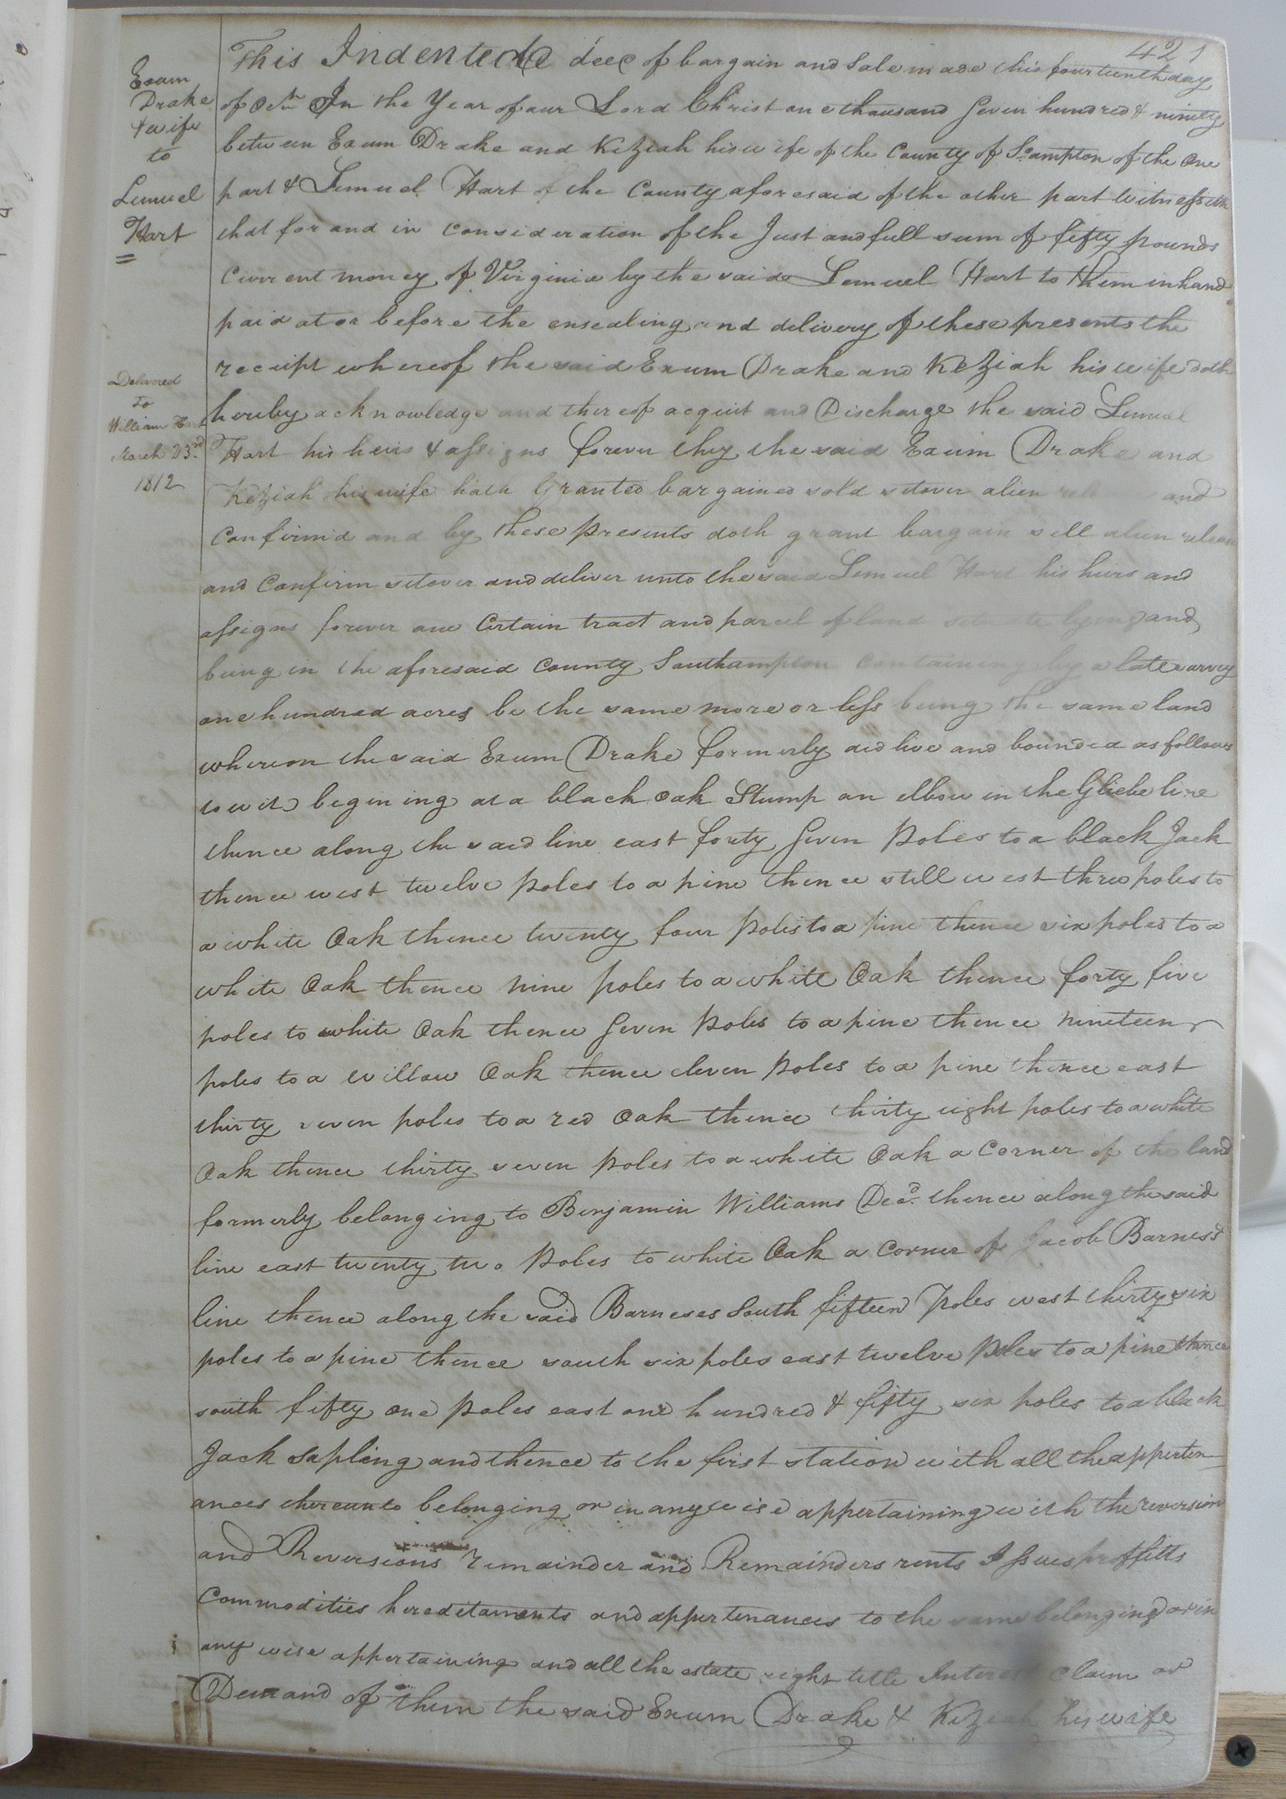 421
Exum
Drake
& wife
to
Lemuel
Hart
Delivered
To
William Hart
March 23rd
1812
This Indented deed of bargain and Sale made this fourteenth day
of Octr. In the Year of our Lord Christ one thousand Seven hundred & ninety
between Exum Drake and Keziah his wife of the County of S.ampton of the One
part & Lemuel Hart of the County aforesaid of the other part Witnesseth
that for and in Consideration of the Just and full sum of fifty pounds
Current money of Virginia by the said Lemuel Hart to them in hand
paid at or before the ensealing and delivery of these presents the
receipt whereof the said Exum Drake and Keziah his wife doth
hereby acknowledge and thereof acquit and Discharge the said Lemuel
Hart his heirs & assigns forever they the said Exum Drake and
Keziah his wife hath Granted bargained sold setover alien and
Confirm'd and by these presents doth grant bargain sell alien release
and Confirm setover and deliver unto the said Lemuel Hart his heirs and
assigns forever one Certain tract and parcel of land situate lying and
being in the aforesaid County Southampton Containing by a late survey
one hundred acres be the same more or less being the same land
whereon the said Exum Drake formerly did live and bounded as follows
towit) begining at a black oak Stump an elbow in the Gliebe line
thence along the said line east forty Seven Poles to a black Jack
thence west twelve poles to a pine thence still west three poles to
a white Oak thence twenty four Poles to a pine thence six poles to a
white Oak thence nine poles to a white Oak thence forty five
poles to white Oak thence Seven Poles to a pine thence nineteen
poles to a Willow Oak thence eleven Poles to a pine thence east
thirty seven poles to a red Oak thence thirty eight poles to a white
Oak thence thirty seven poles to a white Oak a Corner of the land
formerly belonging to Benjamin Williams Decd. thence along the said
line east twenty two Poles to white Oak a Corner of Jacob Barness
line thence along the said Barneses South fifteen Poles west thirty six
poles to a pine thence south six poles east twelve Poles to a pine thence
south fifty one poles east one hundred & fifty six poles to a black
Jack Sapling and thence to the first station with all the apperten
ances thereunto belonging or in any wise appertaining with the reversion
and Reversions remainder and Remainders rents Issues proffitts
Commodities hereditaments and appertenances to the same belonging or in
any wise appertaining and all the estate right title Interest Claim or
Demand of them the said Exum Drake & Keziah his wife